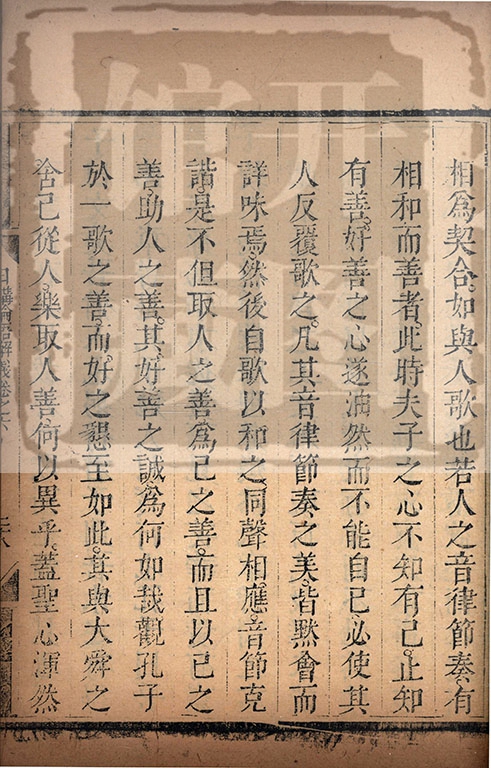 相爲契合如與人歌也若人之音律節奏有
相和而善者此時夫子之心不知有己止知
有善好善之心遂油然而不能自已必使其
人反覆歌之凡其音律節奏之美皆默會而
詳味焉然後自歌以和之同聲相應音節克
諧是不但取人之善爲己之善而且以己之
善助人之善其好善之誠爲何如哉觀孔子
於一歌之善而好之懇至如此其與大舜之
舍己從人樂取人善何以異乎蓋聖心渾然
日講四書解義卷之六